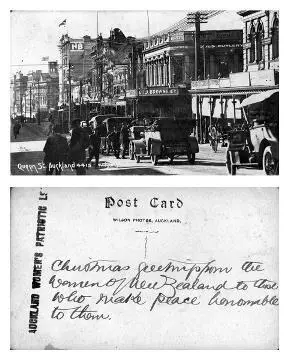 NB
H.S. BUTLERY
J.J. BROWNE
Queen St. Auckland 4415
Post Card
WILSON PHOTOS, AUCKLAND.
AUCKLAND WOMEN'S PATRIOTIC LE
Christmas greetings from the
Women of New Zealand to those
who make peace honourable
to them.